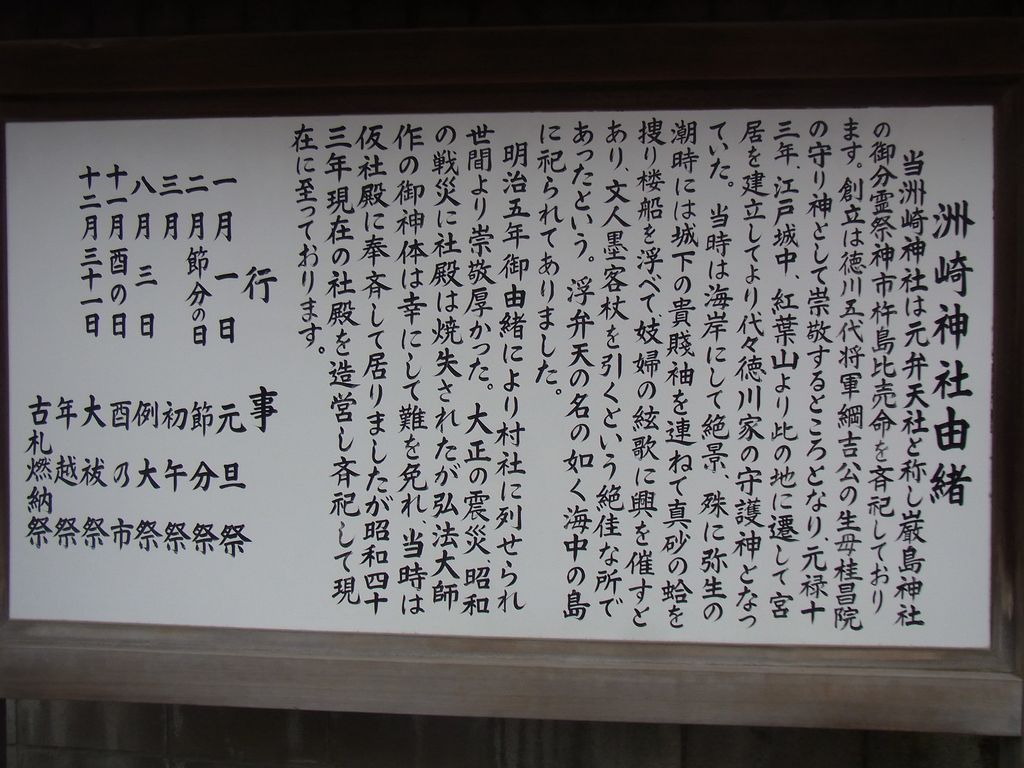 洲崎神社由緒
当洲崎神社は元弁天社と称し巌島神社
の御分霊祭神市杵島比売命を斉祀しており
ます。創立は徳川五代将軍綱吉公の生母桂昌院
の守り神として崇敬するところとなり、元禄十
三年、江戸城中、紅葉山より此の地に遷して宮
居を建立してより代々徳川家の守護神となつ
ていた。 当時は海岸にして絶景、殊に弥生の
潮時には城下の貴賤袖を連ねて真砂の蛤を
捜り楼船を浮べて妓婦の絃歌に興を催すと
あり、文人墨客杖を引くという絶佳な所で
あったという。浮弁天の名の如く海中の島
に祀られてありました。
明治五年御由緒により村社に列せられ
世間より崇敬厚かった。大正の震災、昭和
の戦災に社殿は焼失されたが弘法大師
作の御神体は幸にして難を免れ、当時は
仮社殿に奉斉して居りましたが昭和四十
三年現在の社殿を造営し斉祀して現
在に至っております。
行事
一月一日 元旦祭
二月節分の日 節分祭
三月 初午祭
八月三日 例大祭
十一月酉の日 酉の市
十二月三十一日 大祓祭
年越祭
古札燃納祭